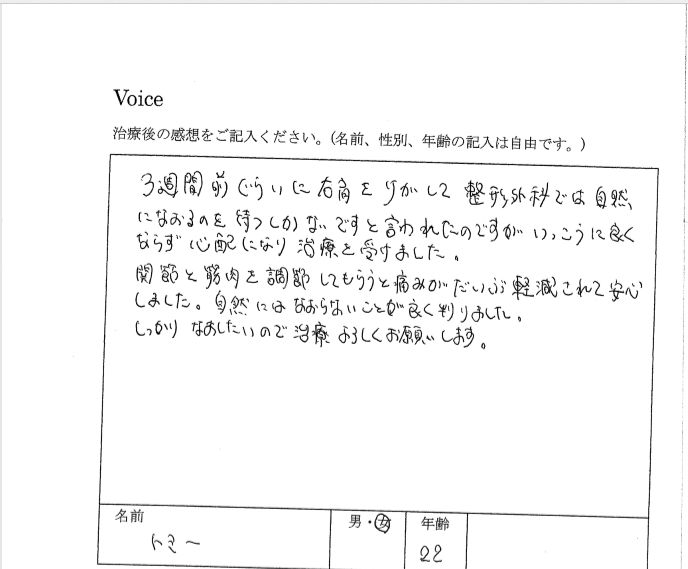 Voice
治療後の感想をご記入ください。(名前、性別、年齢の記入は自由です。)
3週間前ぐらいに右肩をケガして整形外科では自然
になおるのを待つしかないですと言われたのですがいっこうに良く
ならず心配になり治療を受けました。
関節と筋肉を調節してもらうと痛みがだいぶ軽減されて安心
しました。自然にはなおらないことが良く判りました。
しっかりなおしたいので治療よろしくお願いします。
名前 男・女 年齢
トミー 22